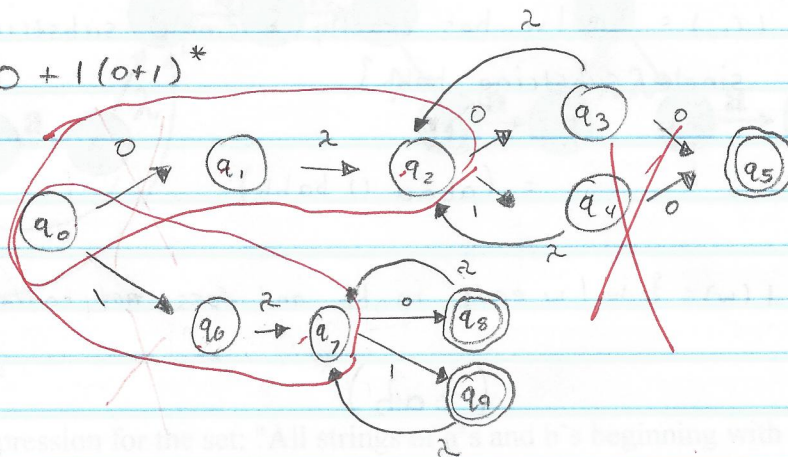 0 + 1(0+1)*
λ
0 q1 λ q2 0 q3 0 q5
q0 1 q4 0
λ
1 q6 λ q7 λ 0 q8
1 q9
λ
pression for the set: "All strings
a's and b's beginning with